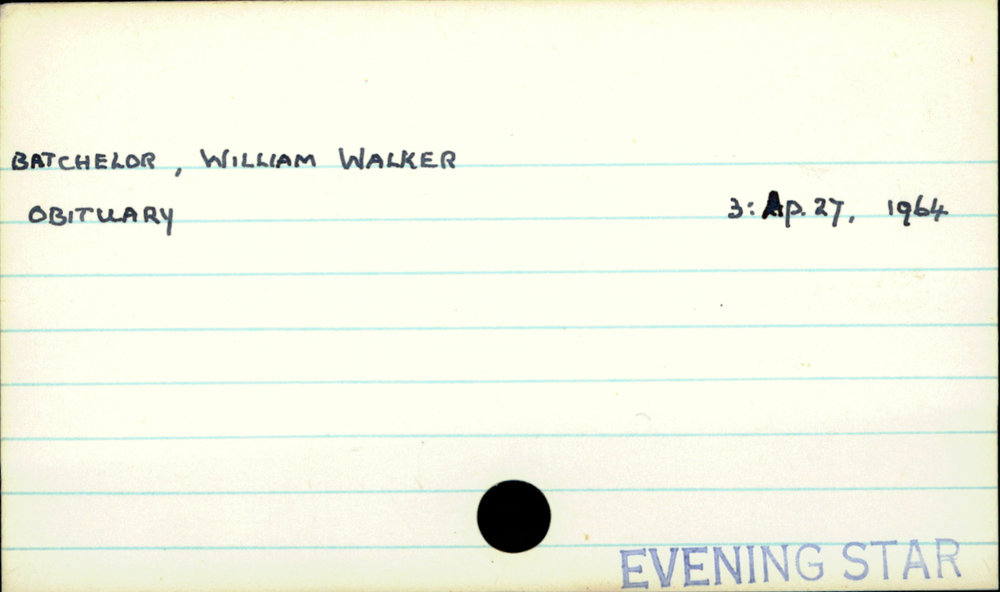 BATCHELOR, WILLIAM WALKER
OBITUARY 3: Ap. 27, 1964
EVENING STAR